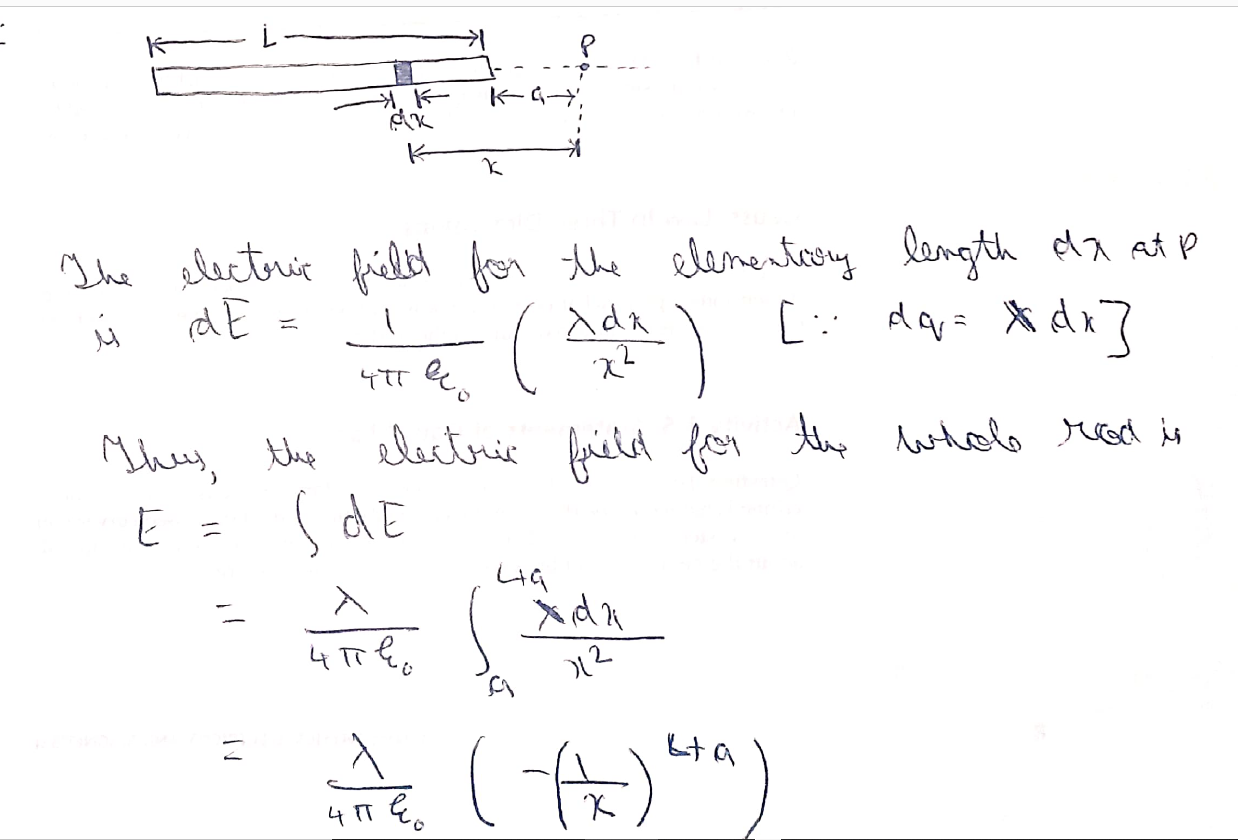 L
P
a
dx
x
The electric field for the elementary length dx at P
is dE = 1/4πε₀ (λdx/x²) [∵ dq = λdx]
Thus, the electric field for the whole rod is
E = ∫ dE
= λ/4πε₀ ∫ₐᴸ⁺ᵃ dx/x²
= λ/4πε₀ (-(1/x)ᴸ⁺ᵃ)